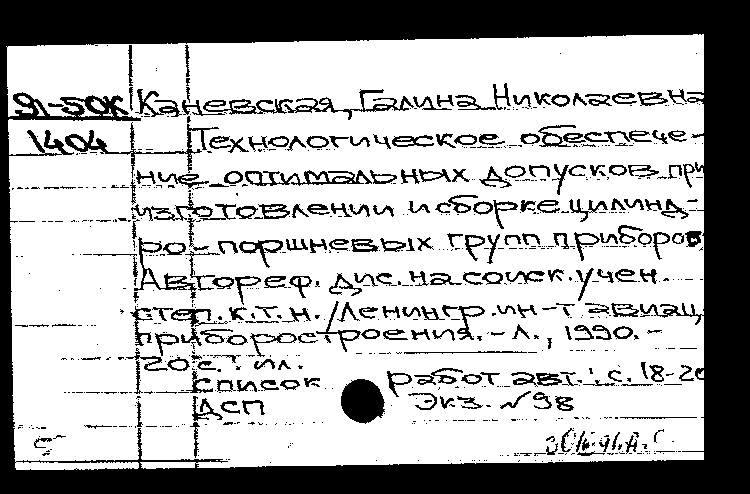 91-50К Каневская, Галина Николаевна
1404 Технологическое обеспече-
ние оптимальных допусков при
изготовлении и сборке цилинд-
ро-поршневых групп приборов
Автореф. дис. на соиск. учен.
степ. к.т.н. / Ленингр. ин-т авиац.
приборостроения. - Л., 1990. -
20 с. : ил.
список работ авт.: с. 18-20
ДСП Экз. № 98